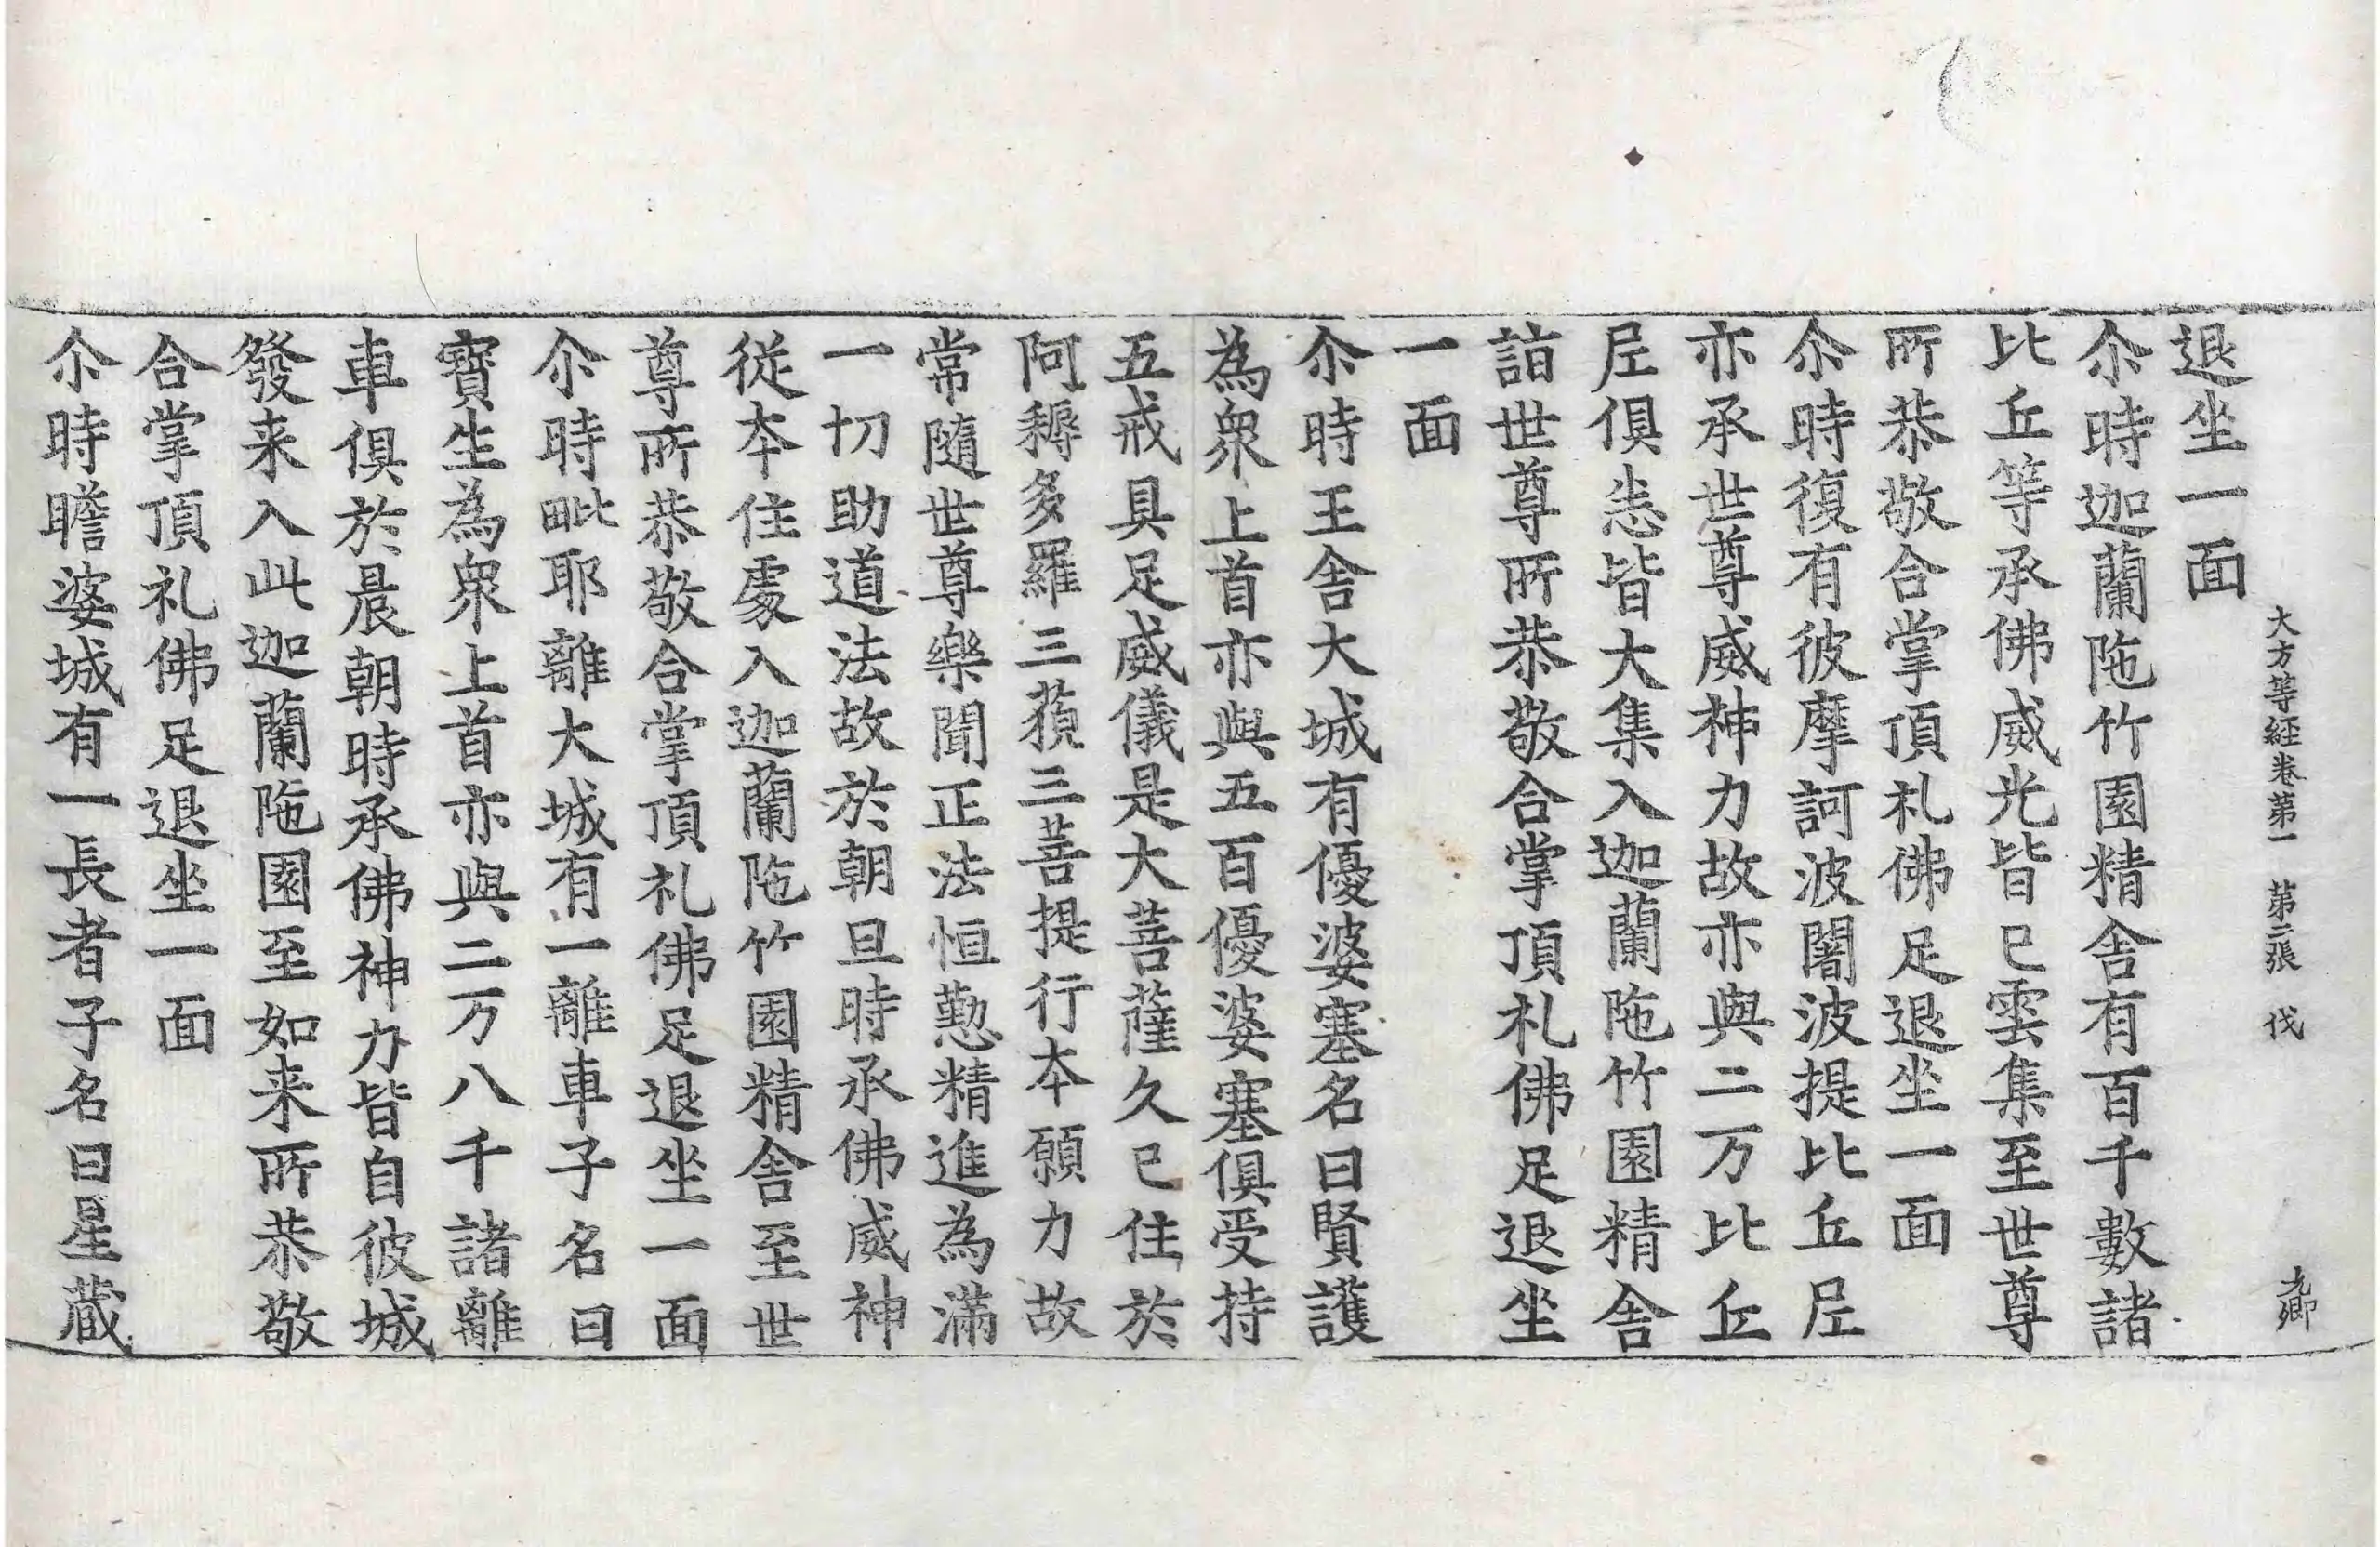 大方等経卷苐一 苐二張 伐
退坐一面
尒時迦蘭陁竹園精舎有百千數諸
比丘等承佛威光皆已雲集至世尊
所恭敬合掌頂礼佛足退坐一面
尒時復有彼摩訶波闍波提比丘尼
亦承世尊威神力故亦與二万比丘
尼俱悉皆大集入迦蘭陁竹園精舎
詣世尊所恭敬合掌頂礼佛足退坐
一面
尒時王舎大城有優婆塞名曰賢護
為衆上首亦與五百優婆塞俱受持
五戒具足威儀是大菩薩久已住於
阿耨多羅三藐三菩提行本願力故
常隨世尊樂聞正法恒懃精進為滿
一切助道法故於朝旦時承佛威神
従本住處入迦蘭陁竹園精舎至世
尊所恭敬合掌頂礼佛足退坐一面
尒時毗耶離大城有一離車子名曰
寶生為衆上首亦與二万八千諸離
車俱於晨朝時承佛神力皆自彼城
發来入此迦蘭陁園至如来所恭敬
合掌頂礼佛足退坐一面
尒時瞻婆城有一長者子名曰星蔵